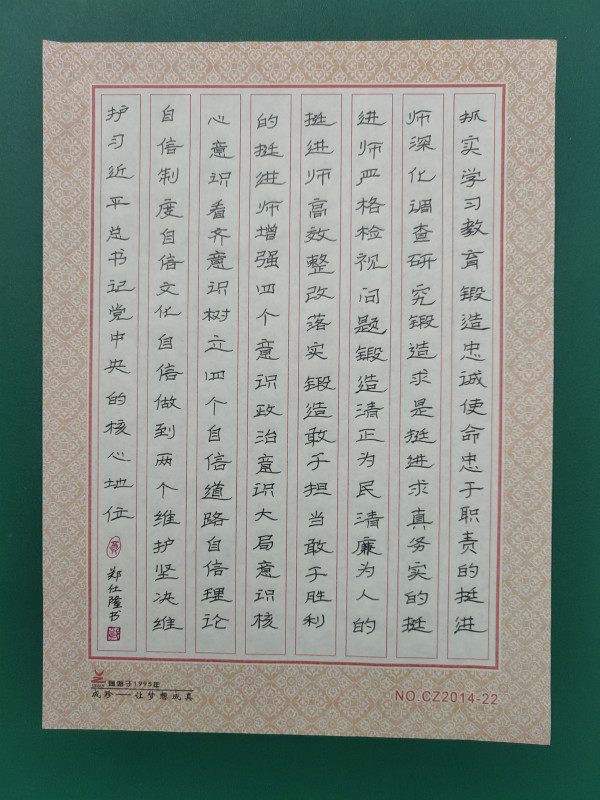 抓实学习教育锻造忠诚使命忠于职责的挺进
师深化调查研究锻造求是挺进求真务实的挺
进师严格检视问题锻造清正为民清廉为人的
挺进师高效整改落实锻造敢于担当敢于胜利
的挺进师增强四个意识政治意识大局意识核
心意识看齐意识树立四个自信道路自信理论
自信制度自信文化自信做到两个维护坚决维
护习近平总书记党中央的核心地位
郑仕隆书
1995年
成珍——让梦想成真
NO.CZ2014-22